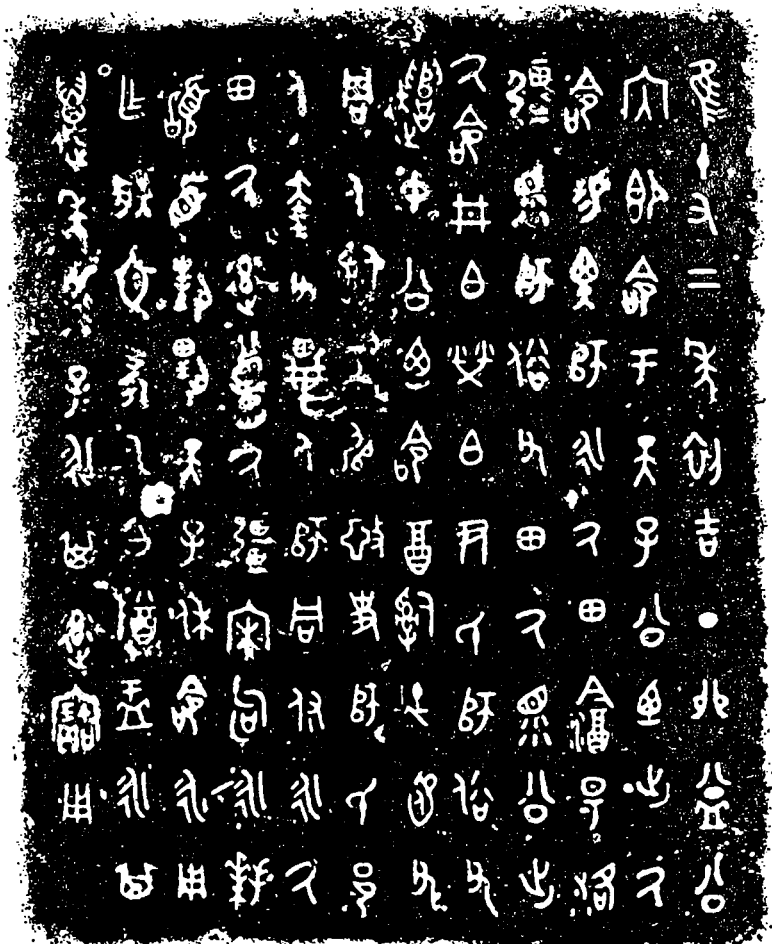 隹十又二年初吉丁卯益公
内即命于天子公廼出厥
命易畀師永厥田陰昜洛
疆眔師俗父田厥眔公出
厥命井白𤇾白尹氏師俗父
遣中公廼命酉𤔲徒父
周人𤔲工史師氏邑
人奎父畢人師同付永厥
田厥率厥疆宋句永拜
𩒨首對揚天子休命永用
乍朕文考乙白尊盂永其
萬年孫子永其率寶用